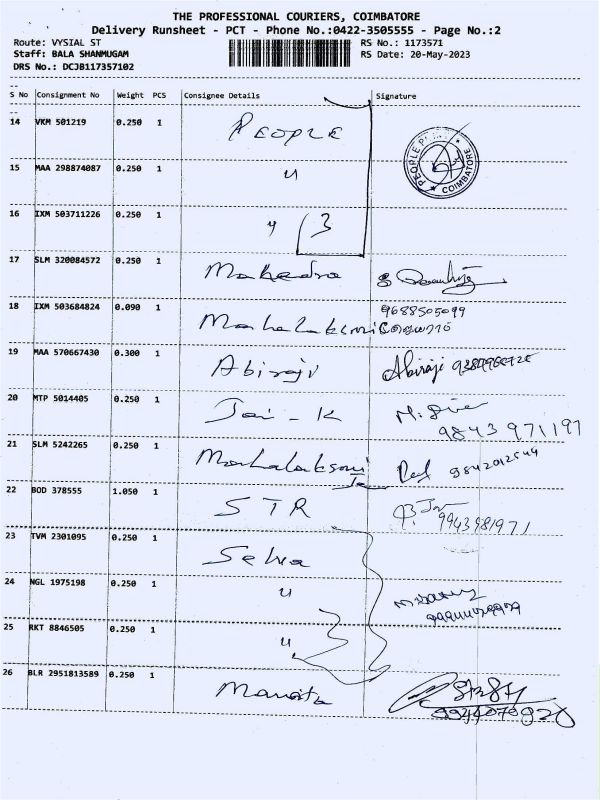 THE PROFESSIONAL COURIERS, COIMBATORE
Delivery Runsheet - PCT - Phone No.:0422-3505555 - Page No.:2
Route: VYSIAL ST
RS No.: 1173571
Staff: BALA SHANMUGAM
RS Date: 20-May-2023
DRS No.: DCJB117357102
S No Consignment No Weight PCS Consignee Details Signature
14 VKM 501219 0.250 1 PEOPLE
PEOPLE COIMBATORE
15 MAA 298874087 0.250 1 "
16 IXM 503711226 0.250 1 " 3
17 SLM 320084572 0.250 1 Mahendra
18 IXM 503684824 0.090 1 Mahalaksmi 9688505099
19 MAA 570667430 0.300 1 Abiraji Abiraji
20 MTP 5014405 0.250 1 Jai - K
9843971197
21 SLM 5242265 0.250 1 Mahalaksmi
22 BOD 378555 1.050 1 STR
9943981971
23 TVM 2301095 0.250 1 Selva
24 NGL 1975198 0.250 1 "
25 RKT 8846505 0.250 1 " 3
26 BLR 2951813589 0.250 1